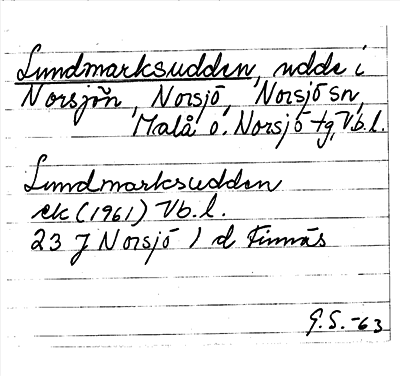 Lundmarksudden, udde i
Norsjön, Norsjö, Norsjö sn,
Malå o. Norsjö tg, Vb. l.
Lundmarksudden
ek (1961) Vb. l.
23 J Norsjö 1 d Finnäs
G. S. -63